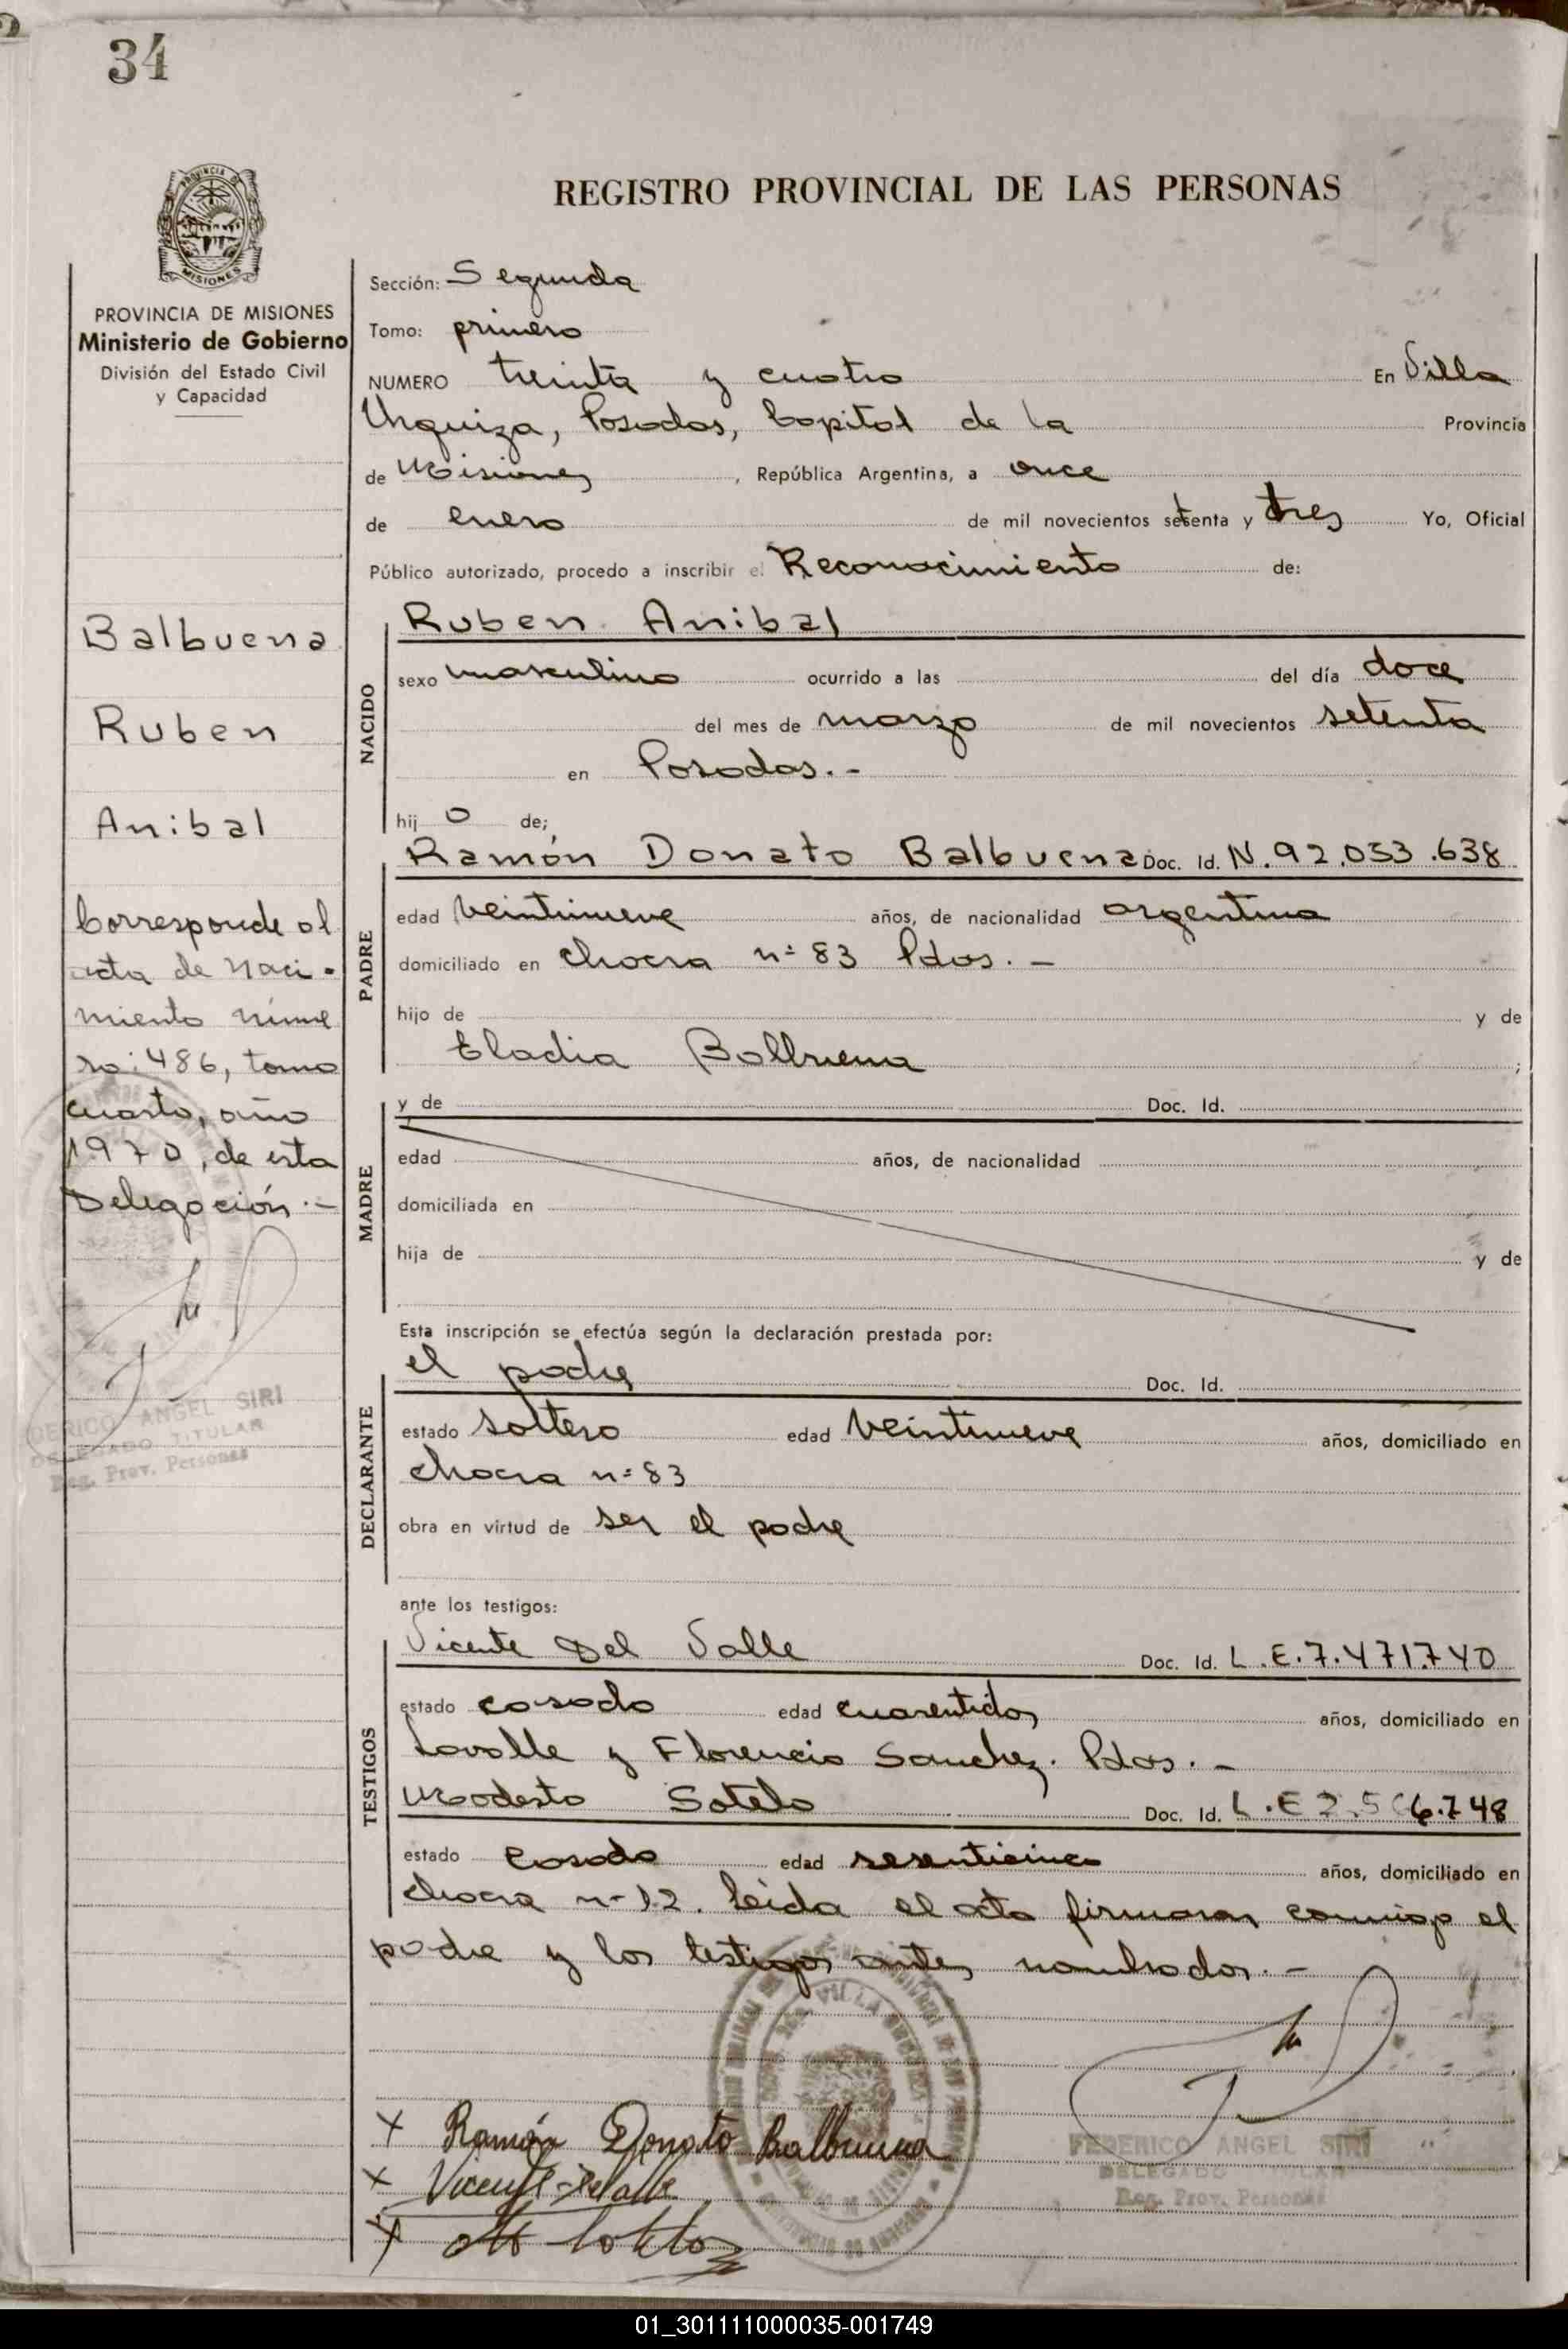 34
REGISTRO PROVINCIAL DE LAS PERSONAS
PROVINCIA DE MISIONES
Ministerio de Gobierno
División del Estado Civil
y Capacidad
Balbuena
Ruben
Anibal
Corresponde al
acta de Naci-
miento núme
ro: 486, tomo
cuarto, año
1970, de esta
Delegación.-
DERICO ANGEL SIRI
DELEGADO TITULAR
Reg. Prov. Personas
Sección: Segunda
Tomo: primero
NUMERO treinta y cuatro En Villa
Urquiza, Posadas, Capital de la Provincia
de Misiones, República Argentina, a once
de enero de mil novecientos setenta y tres Yo, Oficial
Público autorizado, procedo a inscribir el Reconocimiento de:
NACIDO
Ruben Anibal
sexo masculino ocurrido a las del día doce
del mes de marzo de mil novecientos setenta
en Posadas.-
hij o de;
PADRE
Ramón Donato Balbuena Doc. Id. N.92.053.638
edad veintinueve años, de nacionalidad argentina
domiciliado en chacra nº 83 Pdas.-
hijo de y de
Eladia Balbuena ;
MADRE
y de Doc. Id.
edad años, de nacionalidad
domiciliada en
hija de y de
Esta inscripción se efectúa según la declaración prestada por:
DECLARANTE
el padre Doc. Id.
estado soltero edad veintinueve años, domiciliado en
chacra nº 83
obra en virtud de ser el padre
ante los testigos:
TESTIGOS
Vicente Del Valle Doc. Id. L.E.7.471.740
estado casado edad cuarentidos años, domiciliado en
Lavalle y Florencio Sanchez. Pdas.-
Modesto Sotelo Doc. Id. L.E 2.566.748
estado casado edad sesenticinco años, domiciliado en
chacra nº 12. Leida el acta firmaron conmigo el
padre y los testigos antes nombrados.-
VILLA URQUIZA
Ramón Donato Balbuena
Vicente Delvalle
M Sotelo
FEDERICO ANGEL SIRI
DELEGADO TITULAR
Reg. Prov. Personas
01_301111000035-001749